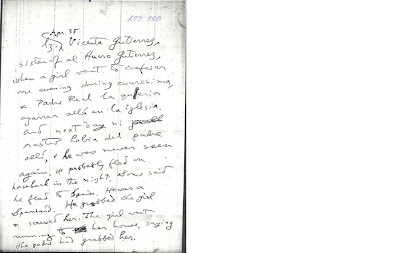 Apr. 35
Vicenta Gutierrez,
sister of el Huero Gutierrez,
when a girl went to confesar
one evening during cuaresma,
& Padre Real la quería
agarrar allá en la iglesia.
And next day ni
rastro había del padre
allí, & he was never seen
again. He probably fled on
horseback in the night. Some said
he fled to Spain. He was a
Spaniard. He grabbed the girl
& screwed her. The girl went
running to her house, saying
the padre had grabbed her.